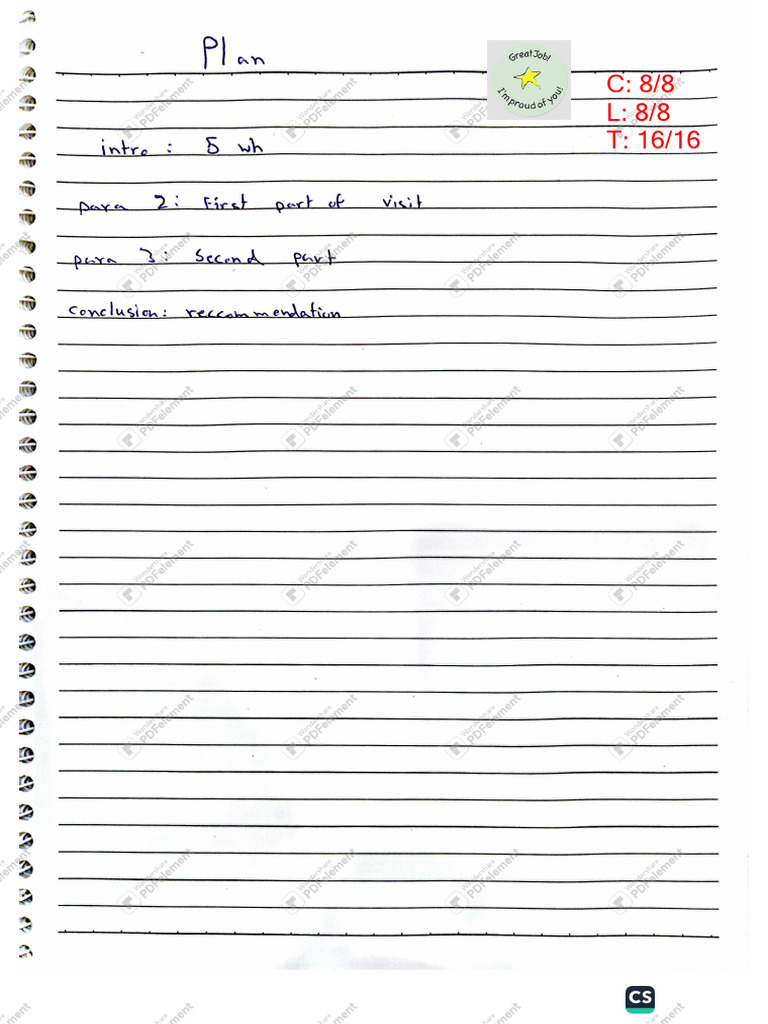 Plan
Great Job!
I'm proud of you!
C: 8/8
L: 8/8
T: 16/16
intro : 5 wh
para 2: First part of visit
para 3: Second part
conclusion: reccommendation
Wondershare
PDFelement
CS